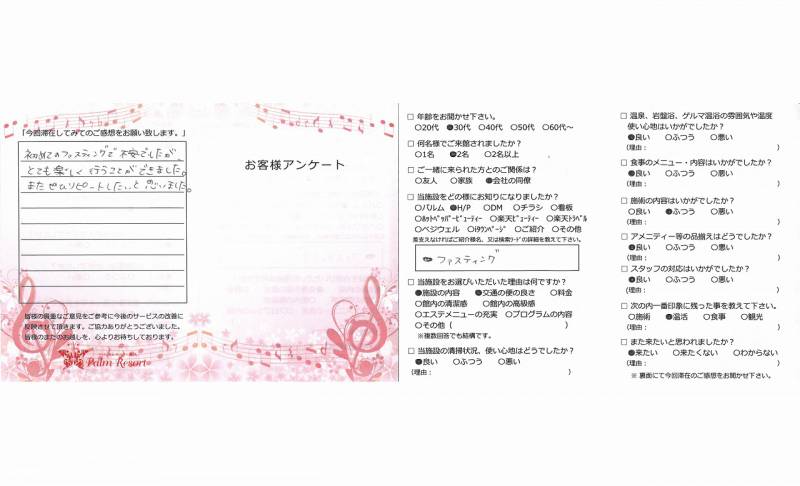 「今回滞在してみてのご感想をお願い致します。」
初めてのファスティングで不安でしたが、
とても楽しく行うことができました。
またぜひリピートしたいと思いました。
皆様の貴重なご意見をご参考に今後のサービスの改善に
反映させて頂きます。ご協力ありがとうございました。
皆様のまたのお越しを、心よりお待ちしております。
Palm Resort
お客様アンケート
□ 年齢をお聞かせ下さい。
○20代 ●30代 ○40代 ○50代 ○60代～
□ 何名様でご来館されましたか?
○1名 ●2名 ○2名以上
□ ご一緒に来られた方とのご関係は?
○友人 ○家族 ●会社の同僚
□ 当施設をどの様にお知りになりましたか?
○パルム ●H/P ○DM ○チラシ ○看板
○ホットペッパービューティー ○楽天ビューティー ○楽天トラベル
○ベジウェル ○iタウンページ ○ご紹介 ○その他
差支えなければご紹介種名、又は検索ワードの詳細を教えて下さい。
ファスティング
□ 当施設をお選びいただいた理由は何ですか?
●施設の内容 ●交通の便の良さ ○料金
○館内の清潔感 ○館内の高級感
○エステメニューの充実 ○プログラムの内容
○その他 ( )
※複数回答でも結構です。
□ 当施設の清掃状況、使い心地はどうでしたか?
●良い ○ふつう ○悪い
(理由: )
□ 温泉、岩盤浴、ゲルマ温浴の雰囲気や温度
使い心地はいかがでしたか?
●良い ○ふつう ○悪い
(理由: )
□ 食事のメニュー・内容はいかがでしたか?
●良い ○ふつう ○悪い
(理由: )
□ 施術の内容はいかがでしたか?
○良い ●ふつう ○悪い
(理由: )
□ アメニティー等の品揃えはどうでしたか?
●良い ○ふつう ○悪い
(理由: )
□ スタッフの対応はいかがでしたか?
●良い ○ふつう ○悪い
(理由: )
□ 次の内一番印象に残った事を教えて下さい。
○施術 ●温活 ○食事 ○観光
(理由: )
□ また来たいと思われましたか?
●来たい ○来たくない ○わからない
(理由: )
※ 裏面にて今回滞在のご感想をお聞かせ下さい。